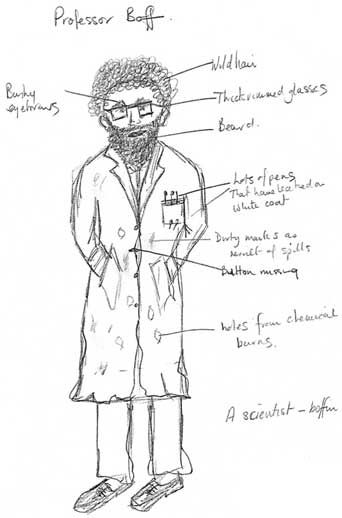 Professor Boff.
Wild hair
Bushy
eyebrows
Thick rimmed glasses
Beard.
Lots of pens
That have leaked on
white coat
Dirty marks as
result of spills
Button missing
holes from chemical
burns.
A scientist – boffin